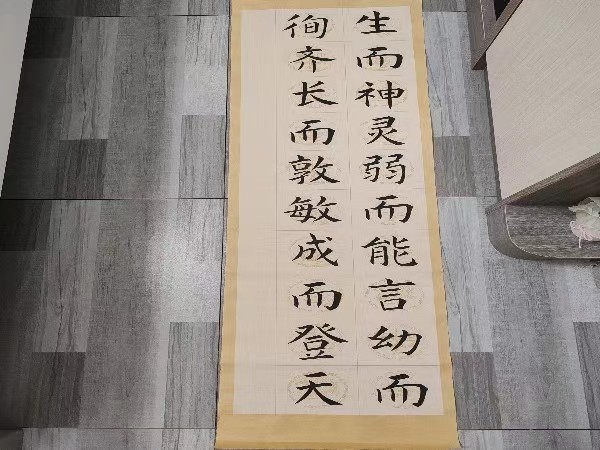 生而神灵弱而能言幼而
徇齐长而敦敏成而登天